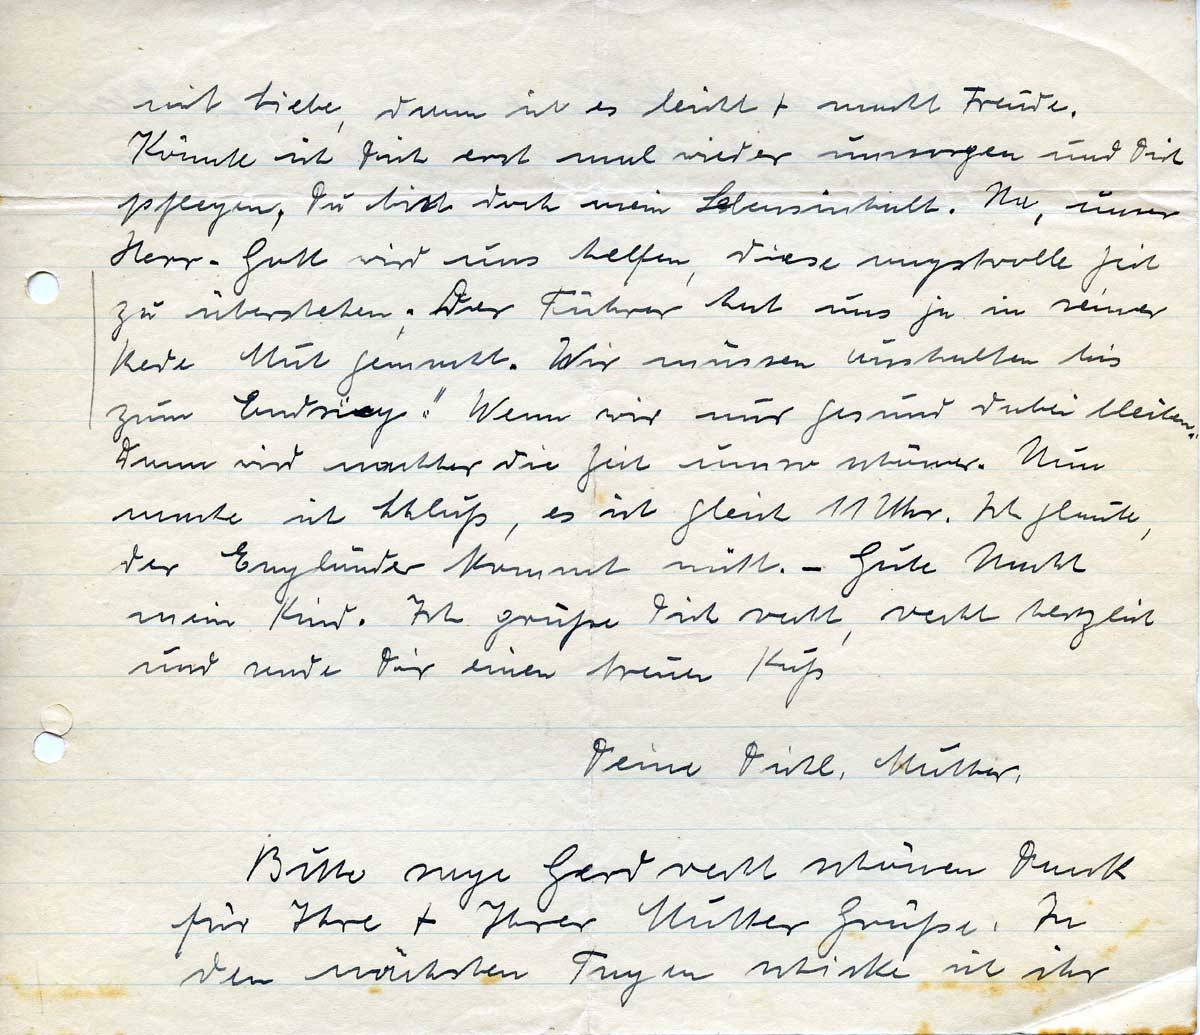 mit Liebe, dann ist es leicht + macht Freude.
Könnte ich Dich erst mal wieder umsorgen und Dich
pflegen, Du bist doch mein Lebensinhalt. Na, unser
Herr-Gott wird uns helfen, diese angstvolle Zeit
zu überstehen. Der Führer hat uns ja in seiner
Rede Mut gemacht. Wir müssen aushalten bis
zum Endsieg!" Wenn wir nur gesund dabei bleiben.
Dann wird nachher die Zeit umso schöner. Nun
mache ich Schluß, es ist gleich 11 Uhr. Ich glaube,
der Engländer kommt nicht. – Gute Nacht
mein Kind. Ich grüße Dich recht, recht herzlich
und sende Dir einen treuen Kuß
Deine Dichl. Mutter.
Bitte sage Gerd recht schönen Dank
für Ihre + Ihrer Mutter Grüße. In
den nächsten Tagen schicke ich ihr